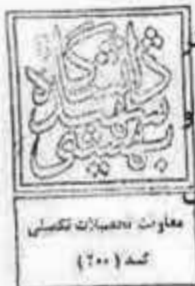 دانشگاه
شهید
بهشتی
معاونت تحصیلات تکمیلی
کد (۶۰۰)